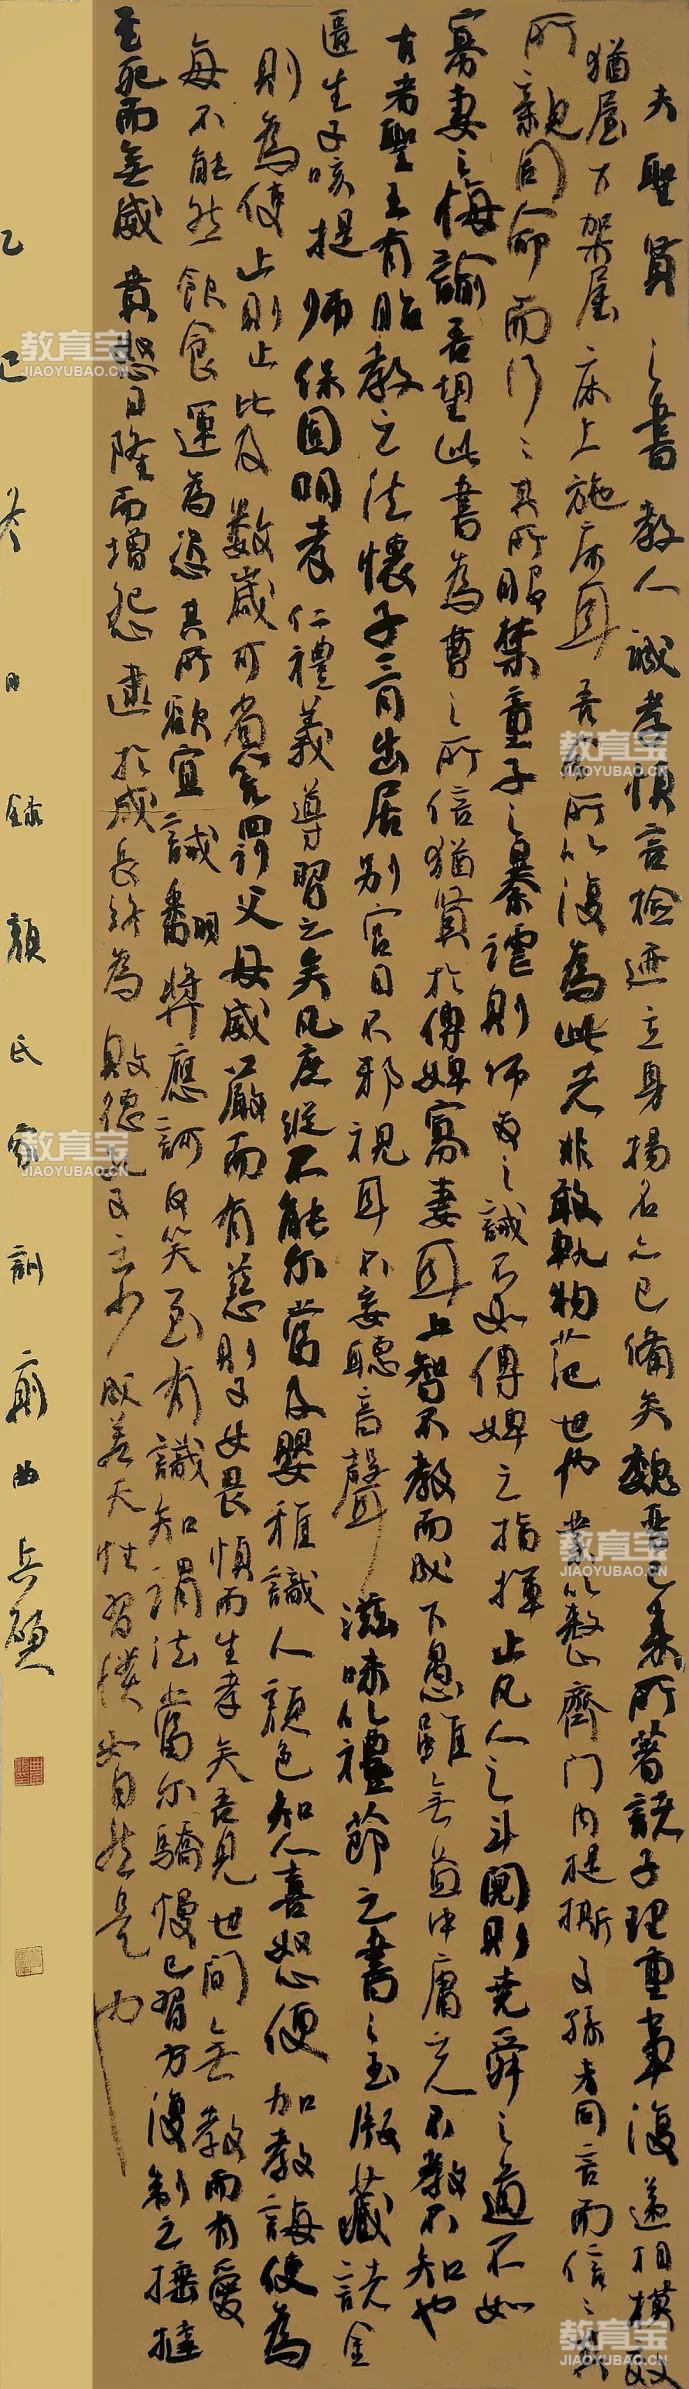 夫聖賢之書教人誠孝慎言檢迹立身揚名亦已備矣魏晉已來所著諸子理重事復遞相模效
猶屋下架屋床上施床耳吾今所以復為此者非敢軌物范世也業以整齊門內提撕子孫夫同言而信信其
所親同命而行行其所服禁童子之暴謔則師友之誡不如傅婢之指揮止凡人之斗鬩則堯舜之道不如
寡妻之誨諭吾望此書為曹之所信猶賢於傅婢寡妻耳上智不教而成下愚雖無益中庸之人不教不知也
古者聖王有胎教之法懷子三月出居別宮目不邪視耳不妄聽音聲滋味以禮節之書之玉版藏諸金
匱生子咳提師保固明孝仁禮義導習之矣凡庶縱不能爾當及嬰稚識人顏色知人喜怒便加教誨使為
則為使止則止比及數歲可省笞罰父母威嚴而有慈則子女畏慎而生孝矣吾見世間無教而有愛
每不能然飲食運為恣其所欲宜誡翻獎應訶反笑至有識知謂法當爾驕慢已習方復制之捶撻
至死而無威忿怒日隆而增怨逮於成長終為敗德孔子云少成若天性習慣如自然是也
乙巳冬日錄顏氏家訓前曲兵碩
教育宝
JIAOYUBAO.CN
教育宝
JIAOYUBAO.CN
教育宝
JIAOYUBAO.CN
教育宝
JIAOYUBAO.CN
教育宝
JIAOYUBAO.CN
教育宝
JIAOYUBAO.CN
教育宝
JIAOYUBAO.CN
教育宝
JIAOYUBAO.CN